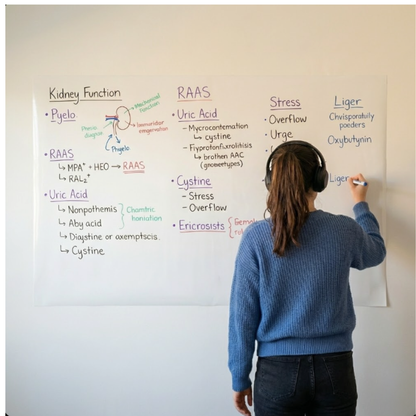 Kidney Function
• Pyelo
Mechanical
function
Pheno
diagnon
Immunidar
emgenration
Phyelo
• RAAS
↳ MPA⁺ + HEO → RAAS
↳ RAL₂⁺
• Uric Acid
↳ Nonpothemis
↳ Aby acid
Chomtric
haniation
↳ Diastine or axemptscis.
↳ Cystine
RAAS
• Uric Acid
– Mycrocontemation
↳ cystine
– Fiyprotonfuxrolihisis
↳ brothen AAC
(grometypes)
• Cystine
– Stress
– Overflow
• Ericrosists
Stress
• Overflow
• Urge
Liger
Chvisporatully
poeders
Oxybutynin
Liger